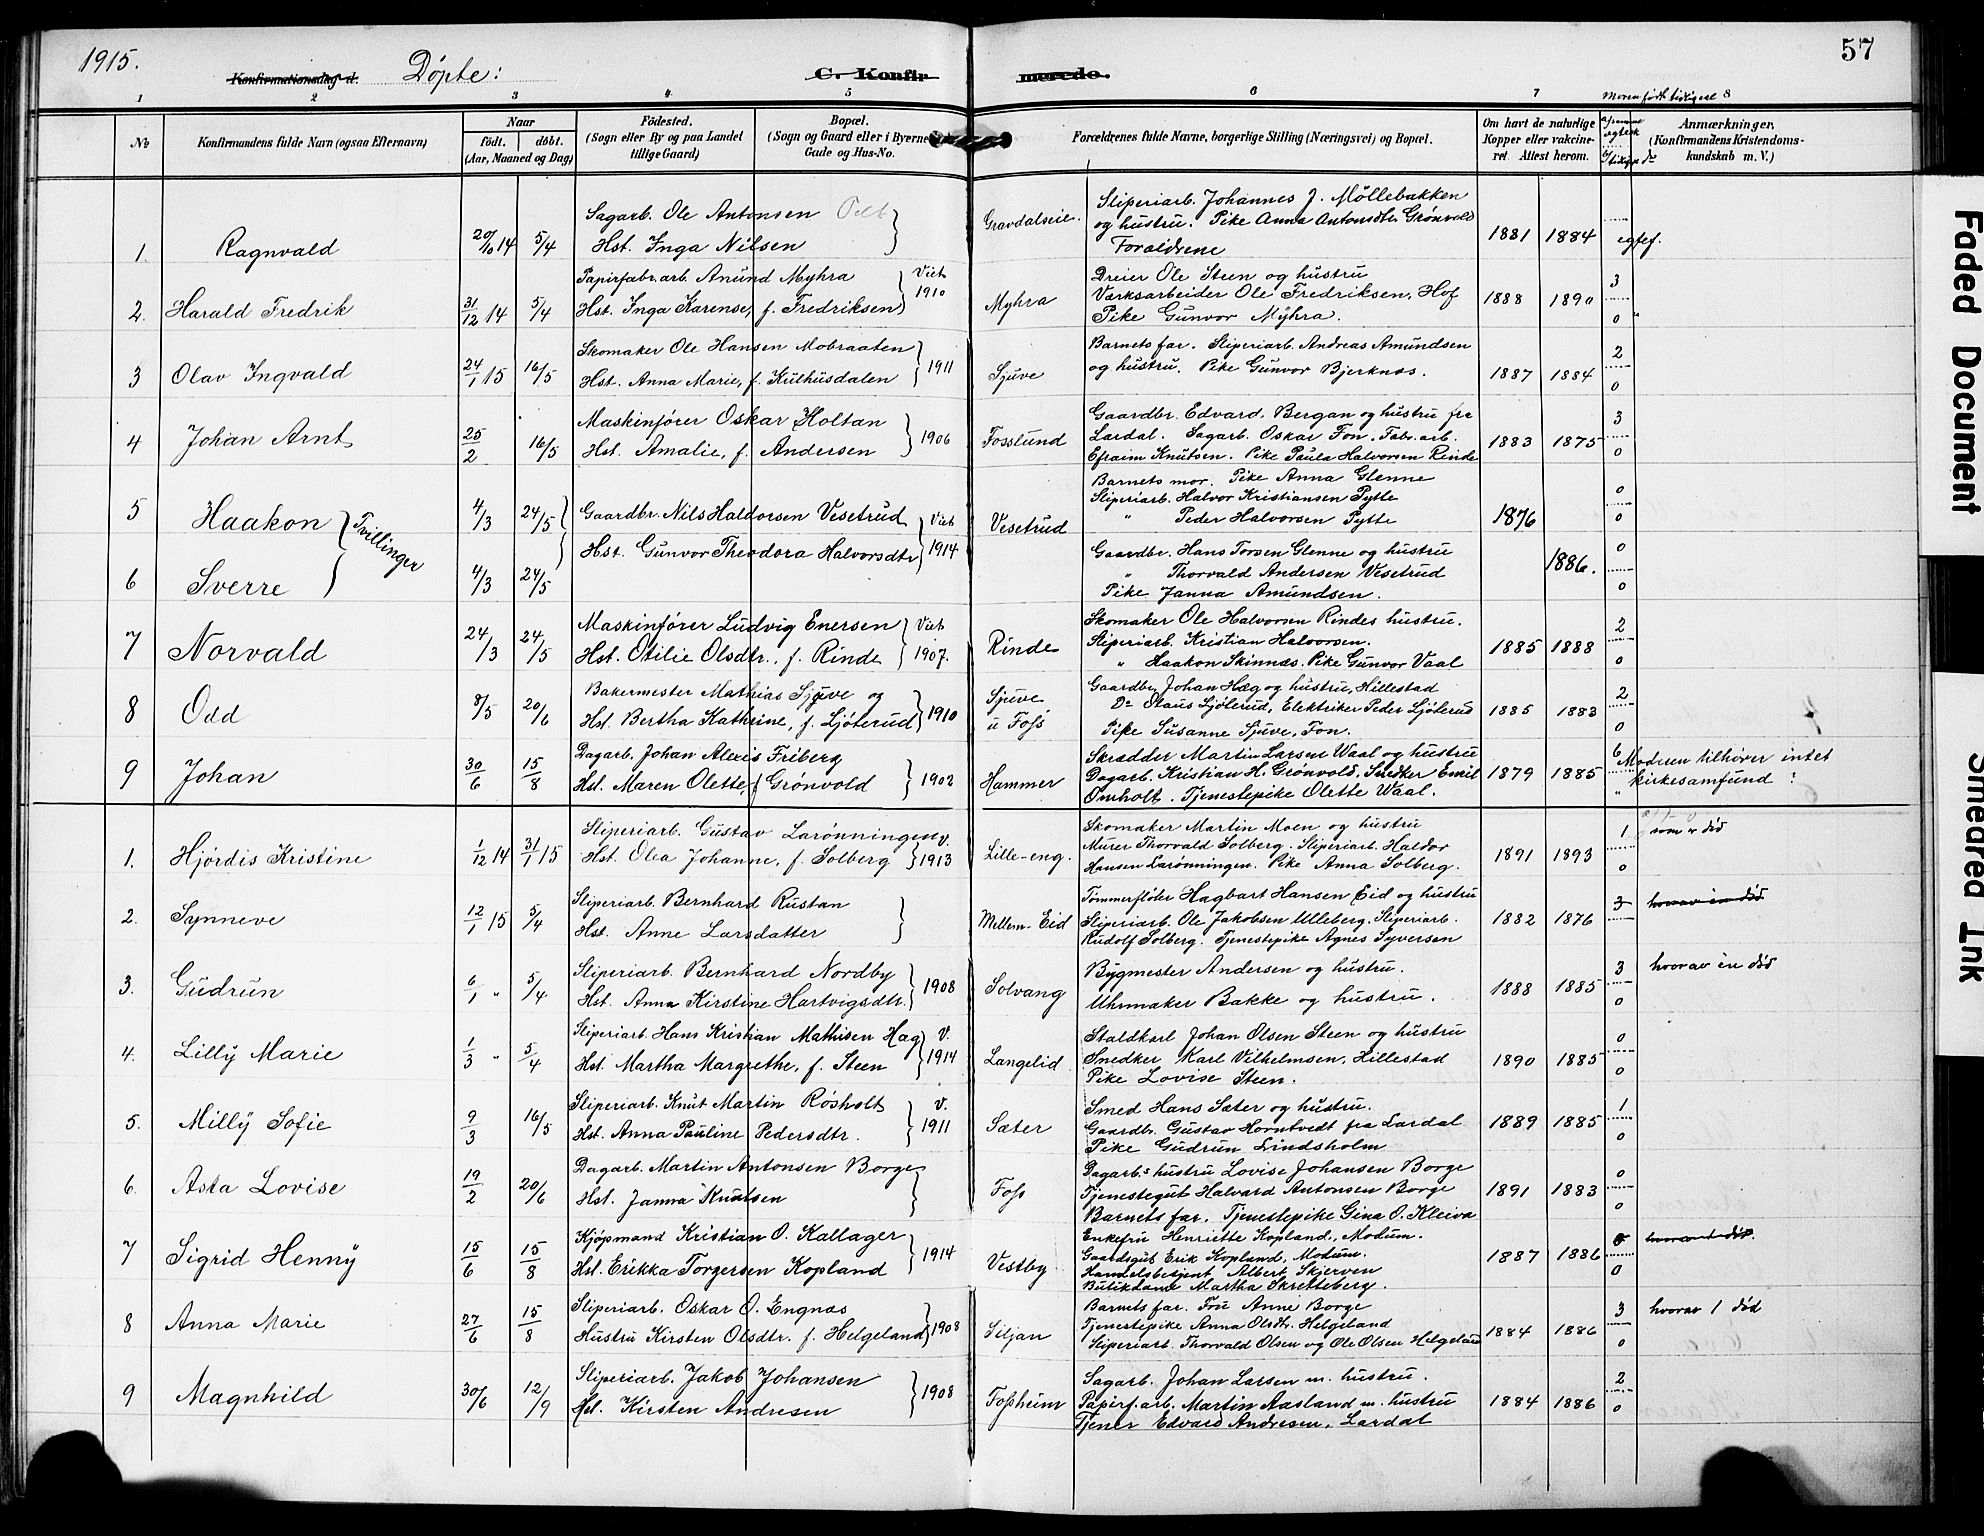 1915.
Konfirmationsdag d. Döpte:
C. Konfir
meredo.
57
1 2 3 4 5 6 7 8
Moren født tidligere
No
Konfirmandens fulde Navn (ogsaa Efternavn)
Naar
födt. döbt.
(Aar, Maaned og Dag)
Födested.
(Sogn eller By og paa Landet
tillige Gaard)
Bopæl.
(Sogn og Gaard eller i Byerne
Gade og Hus-No.
Forældrenes fulde Navne, borgerlige Stilling (Næringsvei) og Bopæl.
Om havt de naturlige
Kopper eller vakcine-
ret. Attest herom.
Anmærkninger.
(Konfirmandens Kristendoms-
kundskab m. V.)
Faded Document
Smeared Ink
1. Ragnvald 20/10 14 5/4
Sagarb. Ole Antonsen
Hst. Inga Nilsen
Gravdalseie.
Sliperiarb. Johannes J. Möllebakken
og hustru. Pike Anna Antonsdtr. Grönvold
Forældrene
1881 1884 egtef.
2. Harald Fredrik 31/12 14 5/4
Papirfabr.arb. Anund Myhra
Hst. Inga Karense, f. Fredriksen
Viet
1910
Myhra
Dreier Ole Steen og hustru
Værksarbeider Ole Fredriksen, Hof
Pike Gunvor Myhra.
1888 1890 3 0
3 Olav Ingvald 24/1 15 16/5
Skomaker Ole Hansen Mobraaten
Hst. Anna Marie, f. Kulhusdalen
1911
Sjuve
Barnets far. Sliperiarb. Andreas Amundsen
og hustru. Pike Gunvor Bjerknæs.
1887 1884 2 0
4 Johan Arnt 25/2 16/5
Maskinförer Oskar Holtan
Hst. Amalie, f. Andersen
1906
Fosslund
Gaardbr. Edvard Bergan og hustru fra
Lardal. Sagarb. Oskar Fon. Fabr.arb.
Efraim Knutsen. Pike Paula Halvorsen Rinde
1883 1875 3 0
5 Haakon 4/3 24/5
Tvillinger
6 Sverre 4/3 24/5
Gaardbr. Nils Haldorsen Vesetrud
Hst. Gunvor Theodora Halvorsdtr
Viet
1914
Vesetrud
Barnets mor. Pike Anna Glenne
Sliperiarb. Halvor Kristiansen Pytte
" Peder Halvorsen Pytte
1876 0 0
Gaardbr. Hans Torsen Glenne og hustru
" Thorvald Andersen Vesetrud
Pike Janna Amundsen.
1886. 0 0
7 Norvald 24/3 24/5
Maskinförer Ludvig Enersen
Hst. Otilie Olsdtr., f. Rinde
Viet
1907.
Rinde
Skomaker Ole Halvorsen Rindes hustru.
Sliperiarb. Kristian Halvorsen.
" Haakon Skinnæs. Pike Gunvor Vaal
1885 1888 2 0
8 Odd 8/5 20/6
Bakermester Mathias Sjuve og
Hst. Bertha Kathrine, f. Sjöterud
1910
Sjuve
u Foss
Gaardbr. Johan Hæg og hustru, Hillestad
Do Olaus Sjöterud, Elektriker Peder Sjöterud
Pike Susanne Sjuve, Fon.
1885 1883 2 0
9 Johan 30/6 15/8
Dagarb. Johan Alexis Friberg
Hst. Maren Olette, f Grönvold
1902
Hammer
Skrædder Martin Larsen Waal og hustru
Dagarb. Kristian H. Grönvold. Snedker Emil
Omholt. Tjenestepike Olette Waal.
1879 1885 6
Moderen tilhörer intet
kirkesamfund !
1. Hjördis Kristine 1/12 14 31/1 15
Sliperiarb. Gustav Larönningen
Hst. Olea Johanne, f. Solberg
v.
1913
Lille-eng.
Skomaker Martin Moen og hustru
Murer Thorvald Solberg. Sliperiarb. Haldor
Hansen Larönningen. Pike Anna Solberg.
1891 1893 1 0 som er död
2. Synneve 12/1 15 5/4
Sliperiarb. Bernhard Rustan
Hst. Anne Larsdatter
Mellem-Eid
Tömmerflöter Hagbart Hansen Eid og hustru
Sliperiarb. Ole Jakobsen Ulleberg. Sliperiarb.
Rudolf Solberg. Tjenestepike Agnes Syversen
1882 1876 3 hvorav èn död
3. Gudrun 6/1 " 5/4
Sliperiarb. Bernhard Nordby
Hst. Anna Kirstine Hartvigsdtr.
1908
Solvang
Bygmester Andersen og hustru.
Uhrmaker Bakke og hustru.
1888 1885 3 0 hvorav èn död
4. Lilly Marie 1/3 " 5/4
Sliperiarb. Hans Kristian Mathisen Hæg
Hst. Martha Margrethe, f. Steen
V.
1914
Langelid
Staldkarl Johan Olsen Steen og hustru
Snedker Karl Vilhelmsen, Hillestad
Pike Lovise Steen.
1890 1885 0 0
5. Milly Sofie 9/3 16/5
Sliperiarb. Knut Martin Rösholt
Hst. Anna Pauline Pedersdtr.
V.
1911
Sæter
Smed Hans Sæter og hustru.
Gaardbr. Gustav Horntvedt fra Lardal
Pike Gudrun Lindsholm
1889 1885 1 0
6. Asta Lovise 19/2 20/6
Dagarb. Martin Antonsen Borge
Hst. Janna Knutsen
Foss
Dagarb.s hustru Lovise Johansen Borge
Tjenestegut Halvard Antonsen Borge
Barnets far. Tjenestepike Gina O. Kleiva
1891 1883 0 0
7 Sigrid Henny 15/6 15/8
Kjöpmand Kristian O. Kallager
Hst. Erikka Torgersen Kopland
1914
Vestby
Enkefru Henriette Kopland, Modum.
Gaardsgut Erik Kopland, Modum.
Handelsbetjent Albert Skjerven
Butikdame Martha Skretteberg.
1887 1886 0 0 hvorav 1 död.
8 Anna Marie 27/6 15/8
Sliperiarb. Oskar O. Engnæs
Hustru Kirsten Olsdtr. f. Helgeland
1908
Siljan
Barnets far. Fru Anne Borge
Tjenestepike Anna Olsdtr. Helgeland
Sliperiarb. Thorvald Olsen og Ole Olsen Helgeland
1884 1886 3 0 hvorav 1 död
9 Magnhild 30/6 12/9
Sliperiarb. Jakob Johansen
Hst. Kirsten Andresen
1908
Fossheim
Sagarb. Johan Larsen m. hustru.
Papirf.arb. Martin Aasland m. hustru
Tjener Edvard Andresen, Lardal
1884 1886 2 0